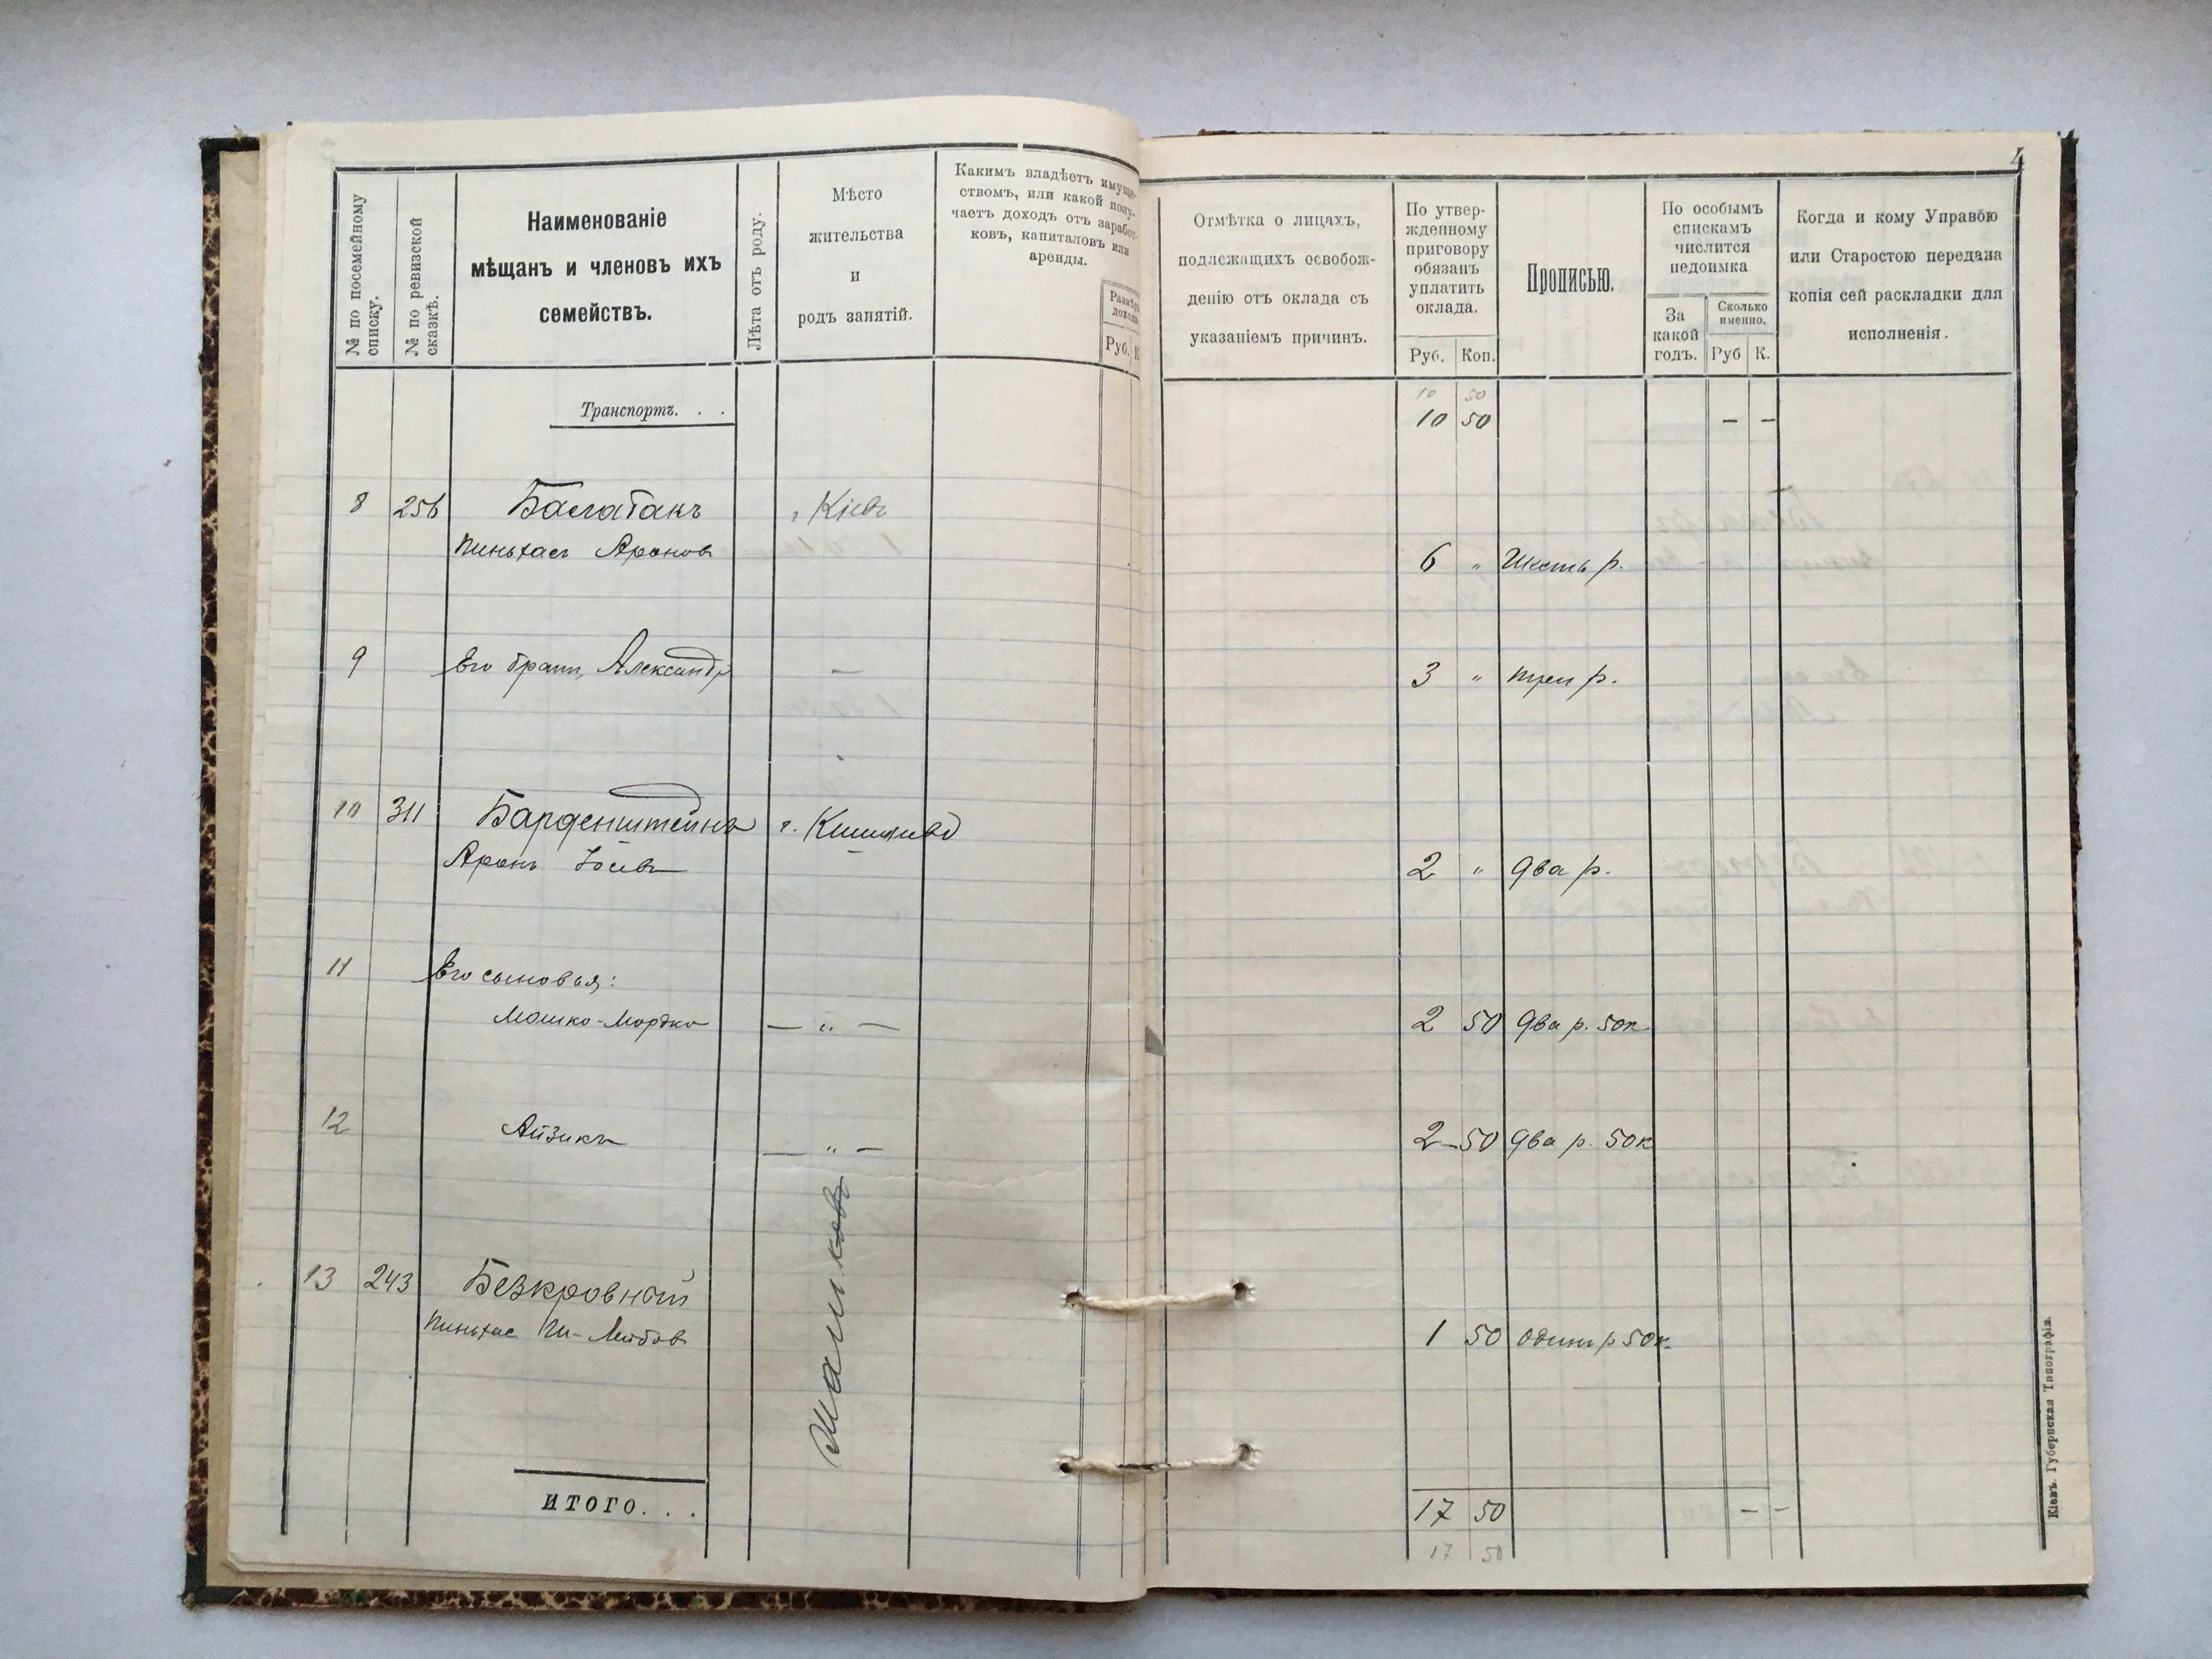 4
№ по посемейному
списку.
№ по ревизской
сказкѣ.
Наименованіе
мѣщанъ и членовъ ихъ
семействъ.
Лѣта отъ роду.
Мѣсто
жительства
и
родъ занятій.
Какимъ владѣетъ имуще-
ствомъ, или какой полу-
чаетъ доходъ отъ заработ-
ковъ, капиталовъ или
аренды.
Размѣръ
дохода
Руб. К
Отмѣтка о лицахъ,
подлежащихъ освобож-
денію отъ оклада съ
указаніемъ причинъ.
По утвер-
жденному
приговору
обязанъ
уплатить
оклада.
Руб. Коп.
Прописью.
По особымъ
спискамъ
числится
недоимка
За
какой
годъ.
Сколько
именно.
Руб К.
Когда и кому Управою
или Старостою передана
копія сей раскладки для
исполненія.
10 50
Транспортъ. . . 10 50 – –
8 256 г. Кіевъ
Пиньхасъ Ароновъ 6 " Шесть р.
9 Его братъ, Александръ — 3 " три р.
10 311 Барденштейнъ г. Кишинев
Аронъ 2 " два р.
11 Его сыновья:
Мошко-Мордко — " — 2 50 два р. 50к
12 Айзикъ — " — 2 50 два р. 50к
13 243 Безкровный
Пиньхас 1 50 один р 50к.
итого. . . 17 50 – –
17 50
Кіевъ. Губернская Типографія.